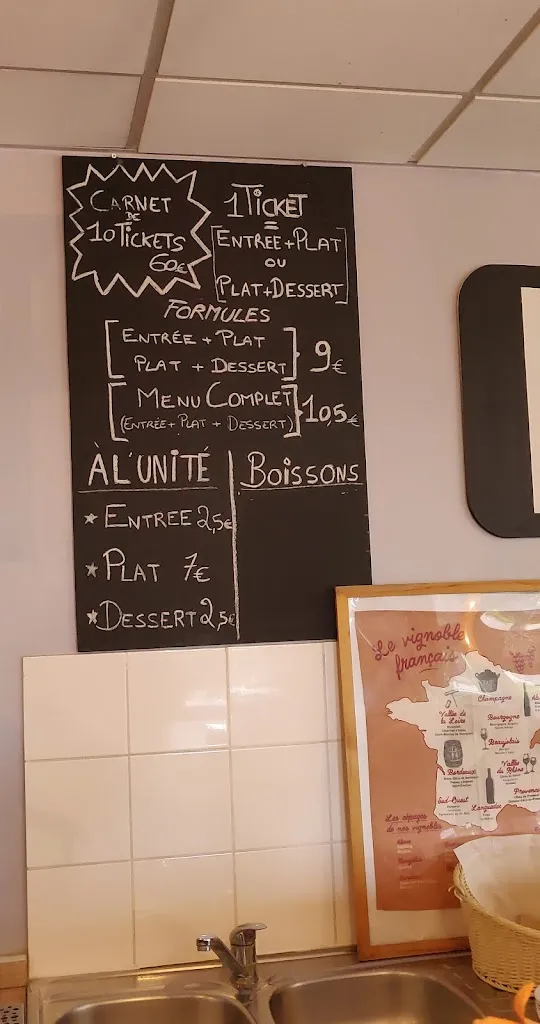 CARNET
DE
10 TICKETS
60€
1 TICKET
=
[ENTREE+PLAT
OU
PLAT+DESSERT]
FORMULES
[ENTRÉE + PLAT
PLAT + DESSERT] 9€
[MENU COMPLET
(ENTRÉE + PLAT + DESSERT)] 10,5€
À L'UNITÉ
* ENTREE 2,5€
* PLAT 7€
* DESSERT 2,5€
BOISSONS
Le vignoble
français
Champagne
Vallée de
la Loire
Bourgogne
Beaujolais
Vallée
du Rhône
Bordeaux
Sud-Ouest
Languedoc
Provence
Les cépages
de nos vignobles